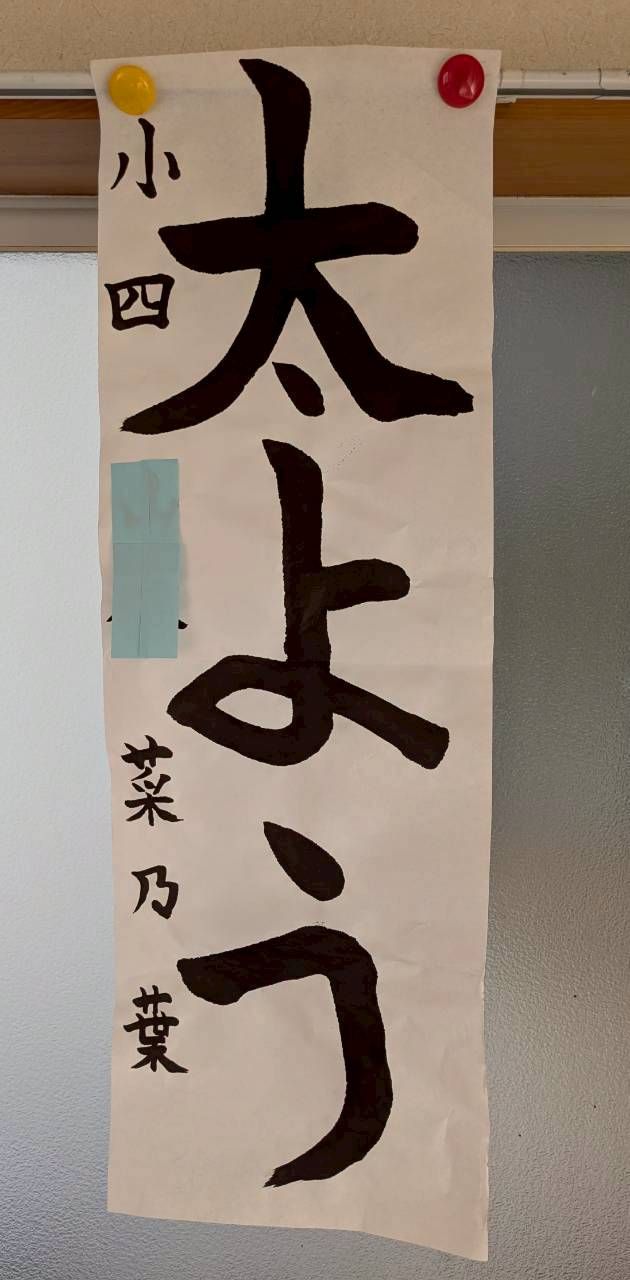 太よう
小四 菜乃葉